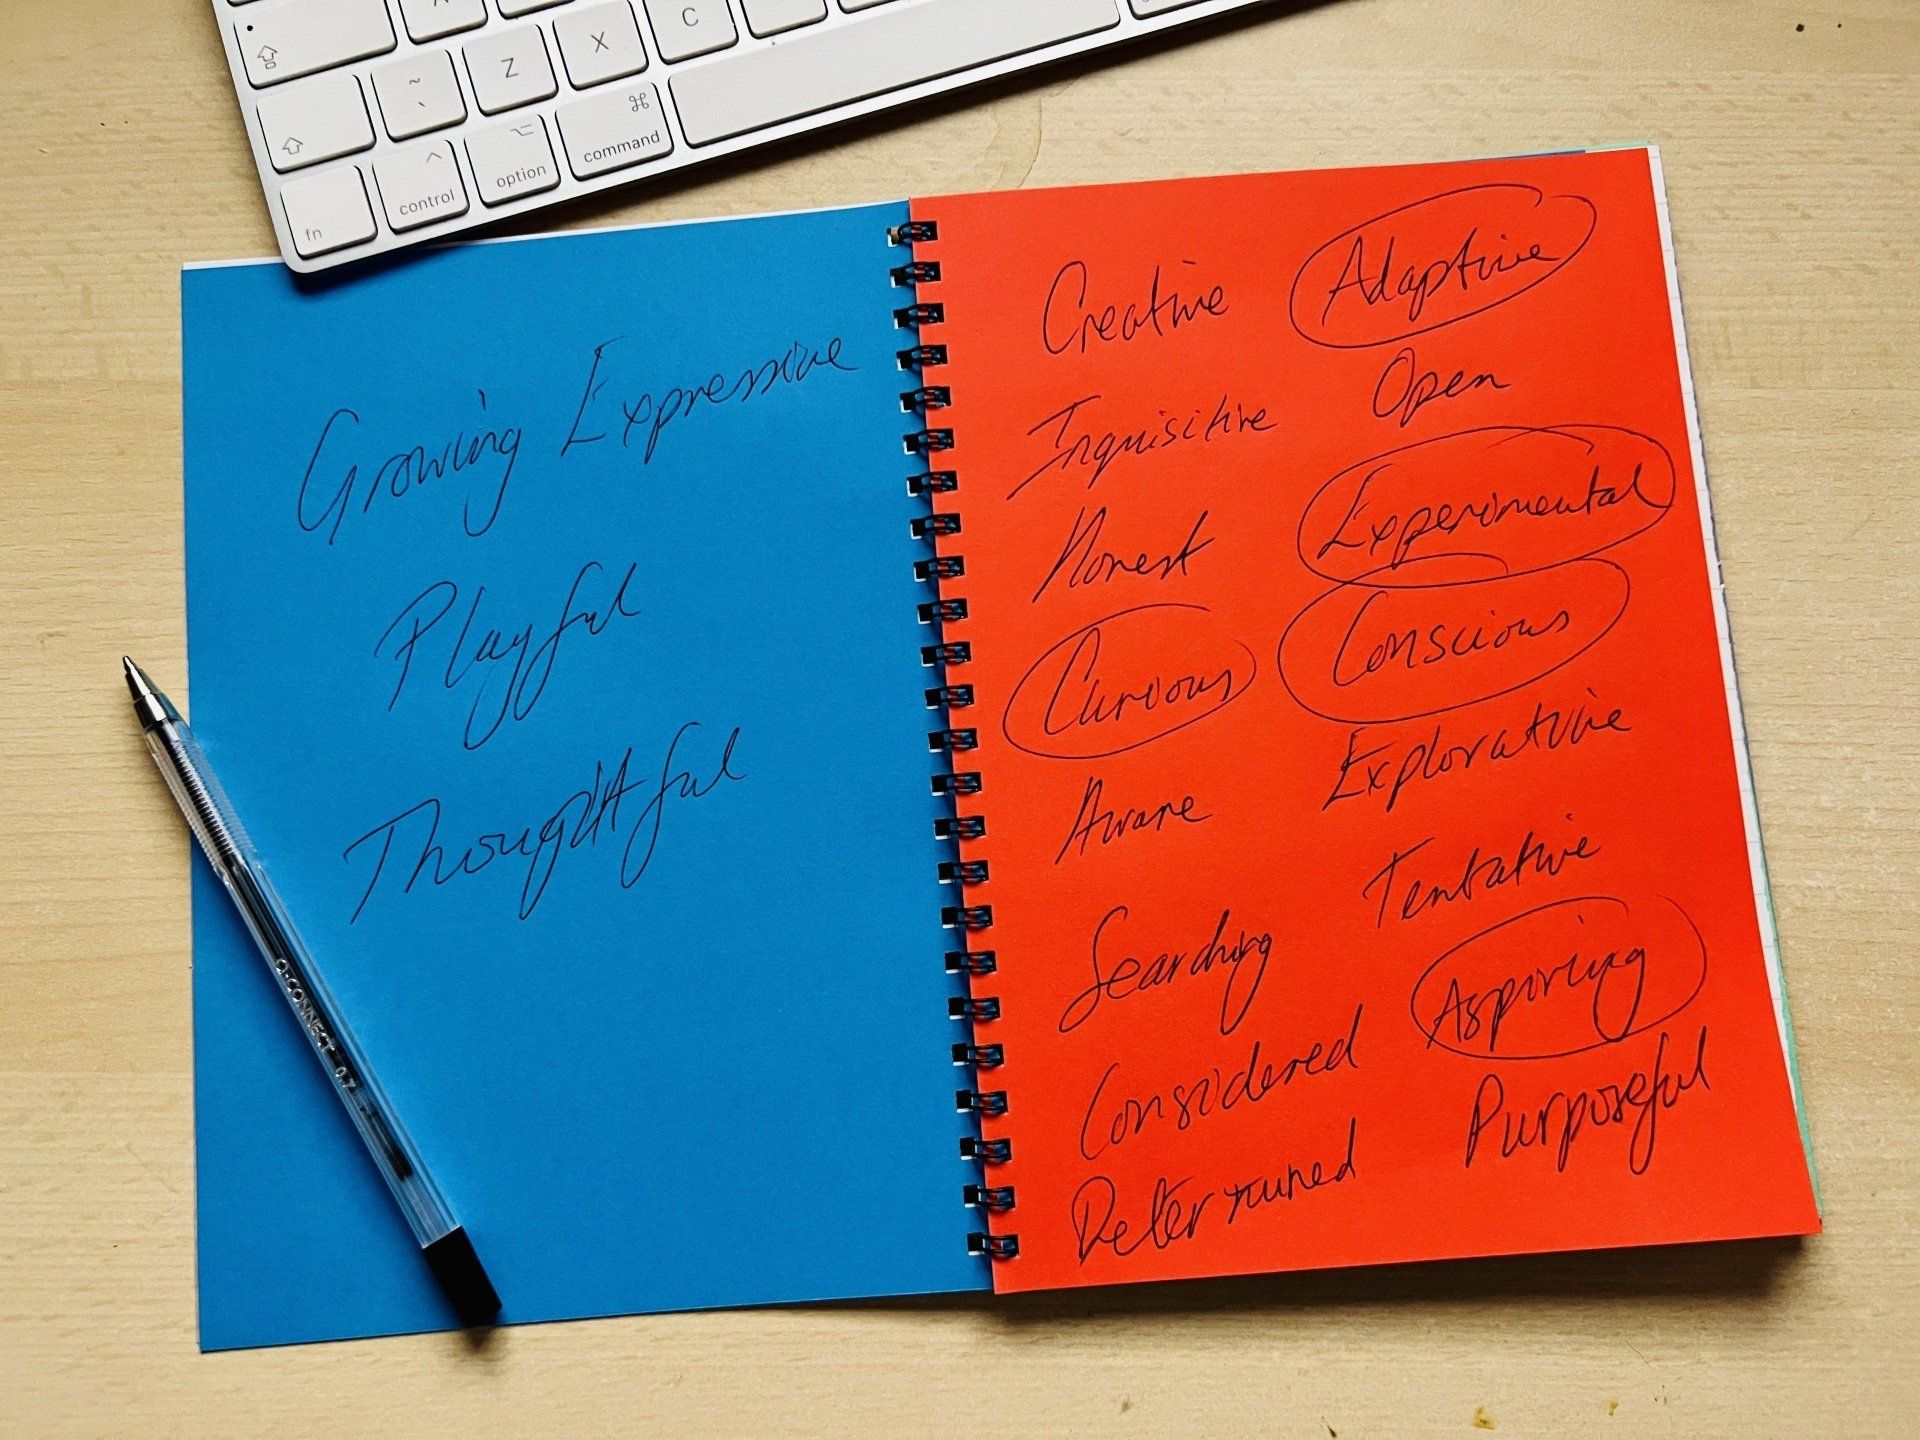 A
C
X
Z
~
`
⌘
command
⌥
option
^
control
fn
Growing Expressive
Playful
Thoughtful
Q-CONNECT 0.7
Creative Adaptive
Inquisitive Open
Honest Experimental
Curious Conscious
Aware Explorative
Searching Tentative
Considered Aspiring
Determined Purposeful